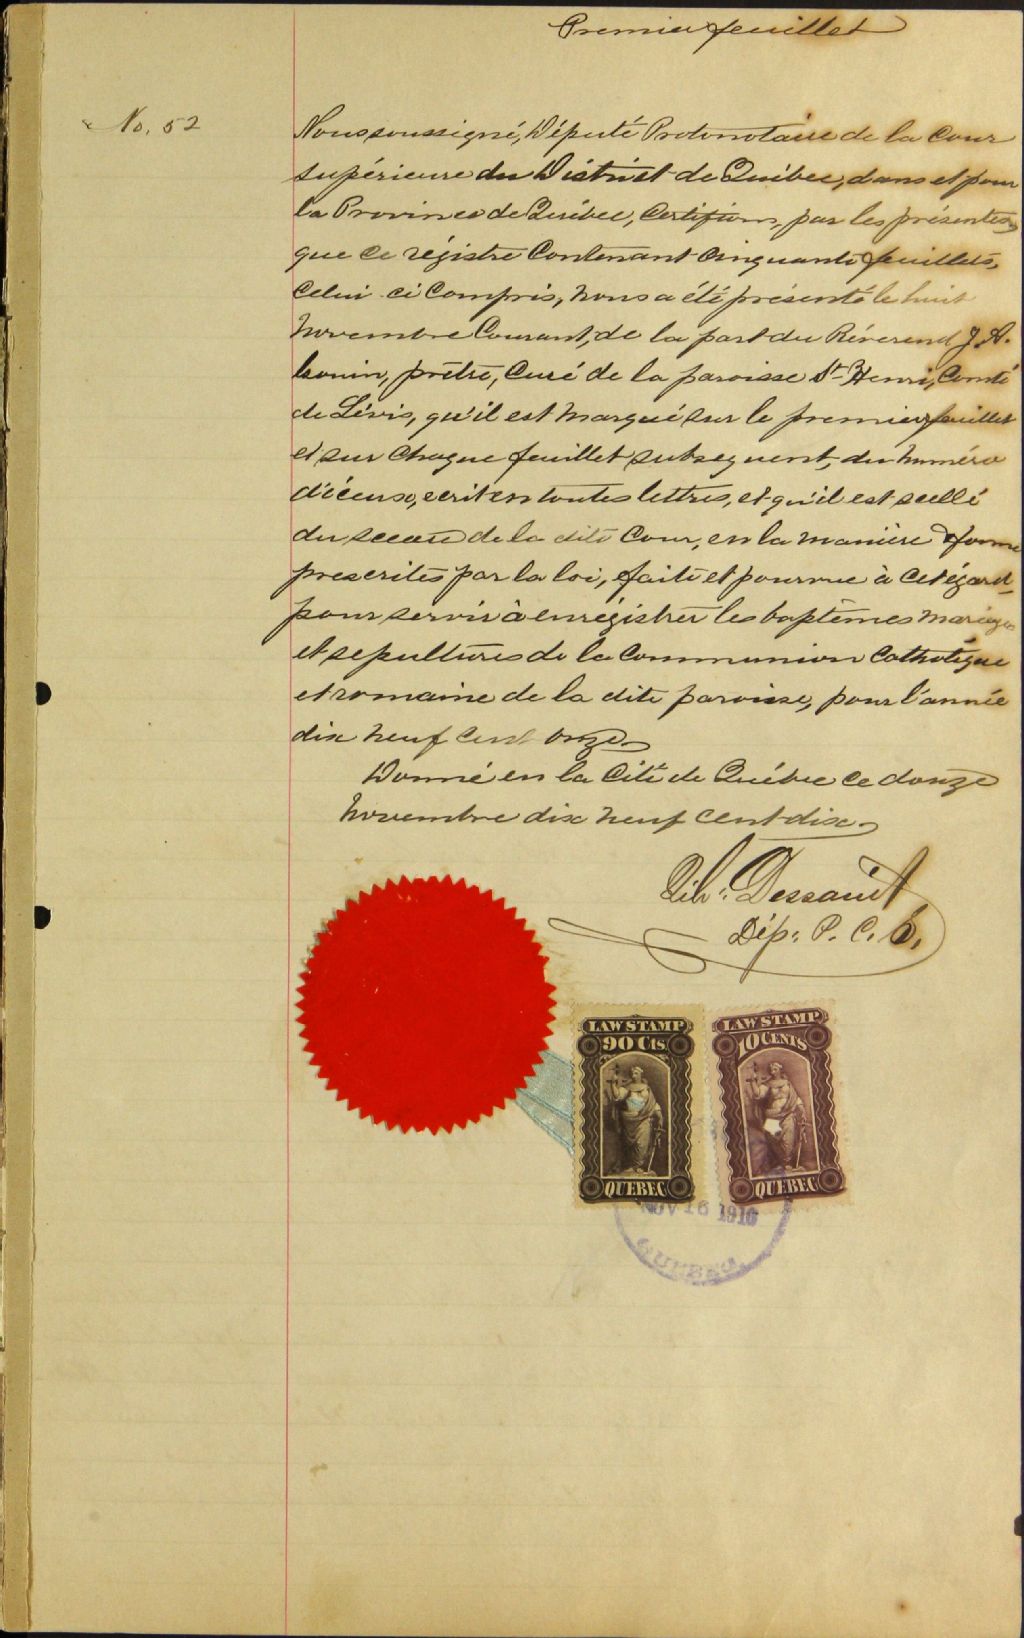 Premier feuillet
No. 52
Nous soussigné, Député Protonotaire de la Cour
supérieure du District de Québec, dans et pour
la Province de Québec, Certifions, par les présentes
que ce régistre Contenant Cinquante feuillets,
Celui ci Compris, nous a été présenté le huit
novembre Courant, de la part du Révérend J. A.
prêtre, Curé de la paroisse St Henri, Comté
de Lévis, qu'il est marqué sur le premier feuillet
et sur chaque feuillet subsequent, du numéro
d'iceux, ecrit en toutes lettres, et qu'il est scellé
du sceau de la dite Cour, en la manière & forme
prescrites par la loi, faite et pourvue à cet égard
pour servir à enrégistrer les baptêmes mariages
et sepultures de la Communion Catholique
et romaine de la dite paroisse, pour l'année
dix neuf cent onze
Donné en la Cité de Québec ce douze
Novembre dix neuf cent dix
Dessault
Dép: P. C. S.
LAW STAMP
90 Cts
QUEBEC
LAW STAMP
10 CENTS
QUEBEC
NOV 16 1910
QUEBEC